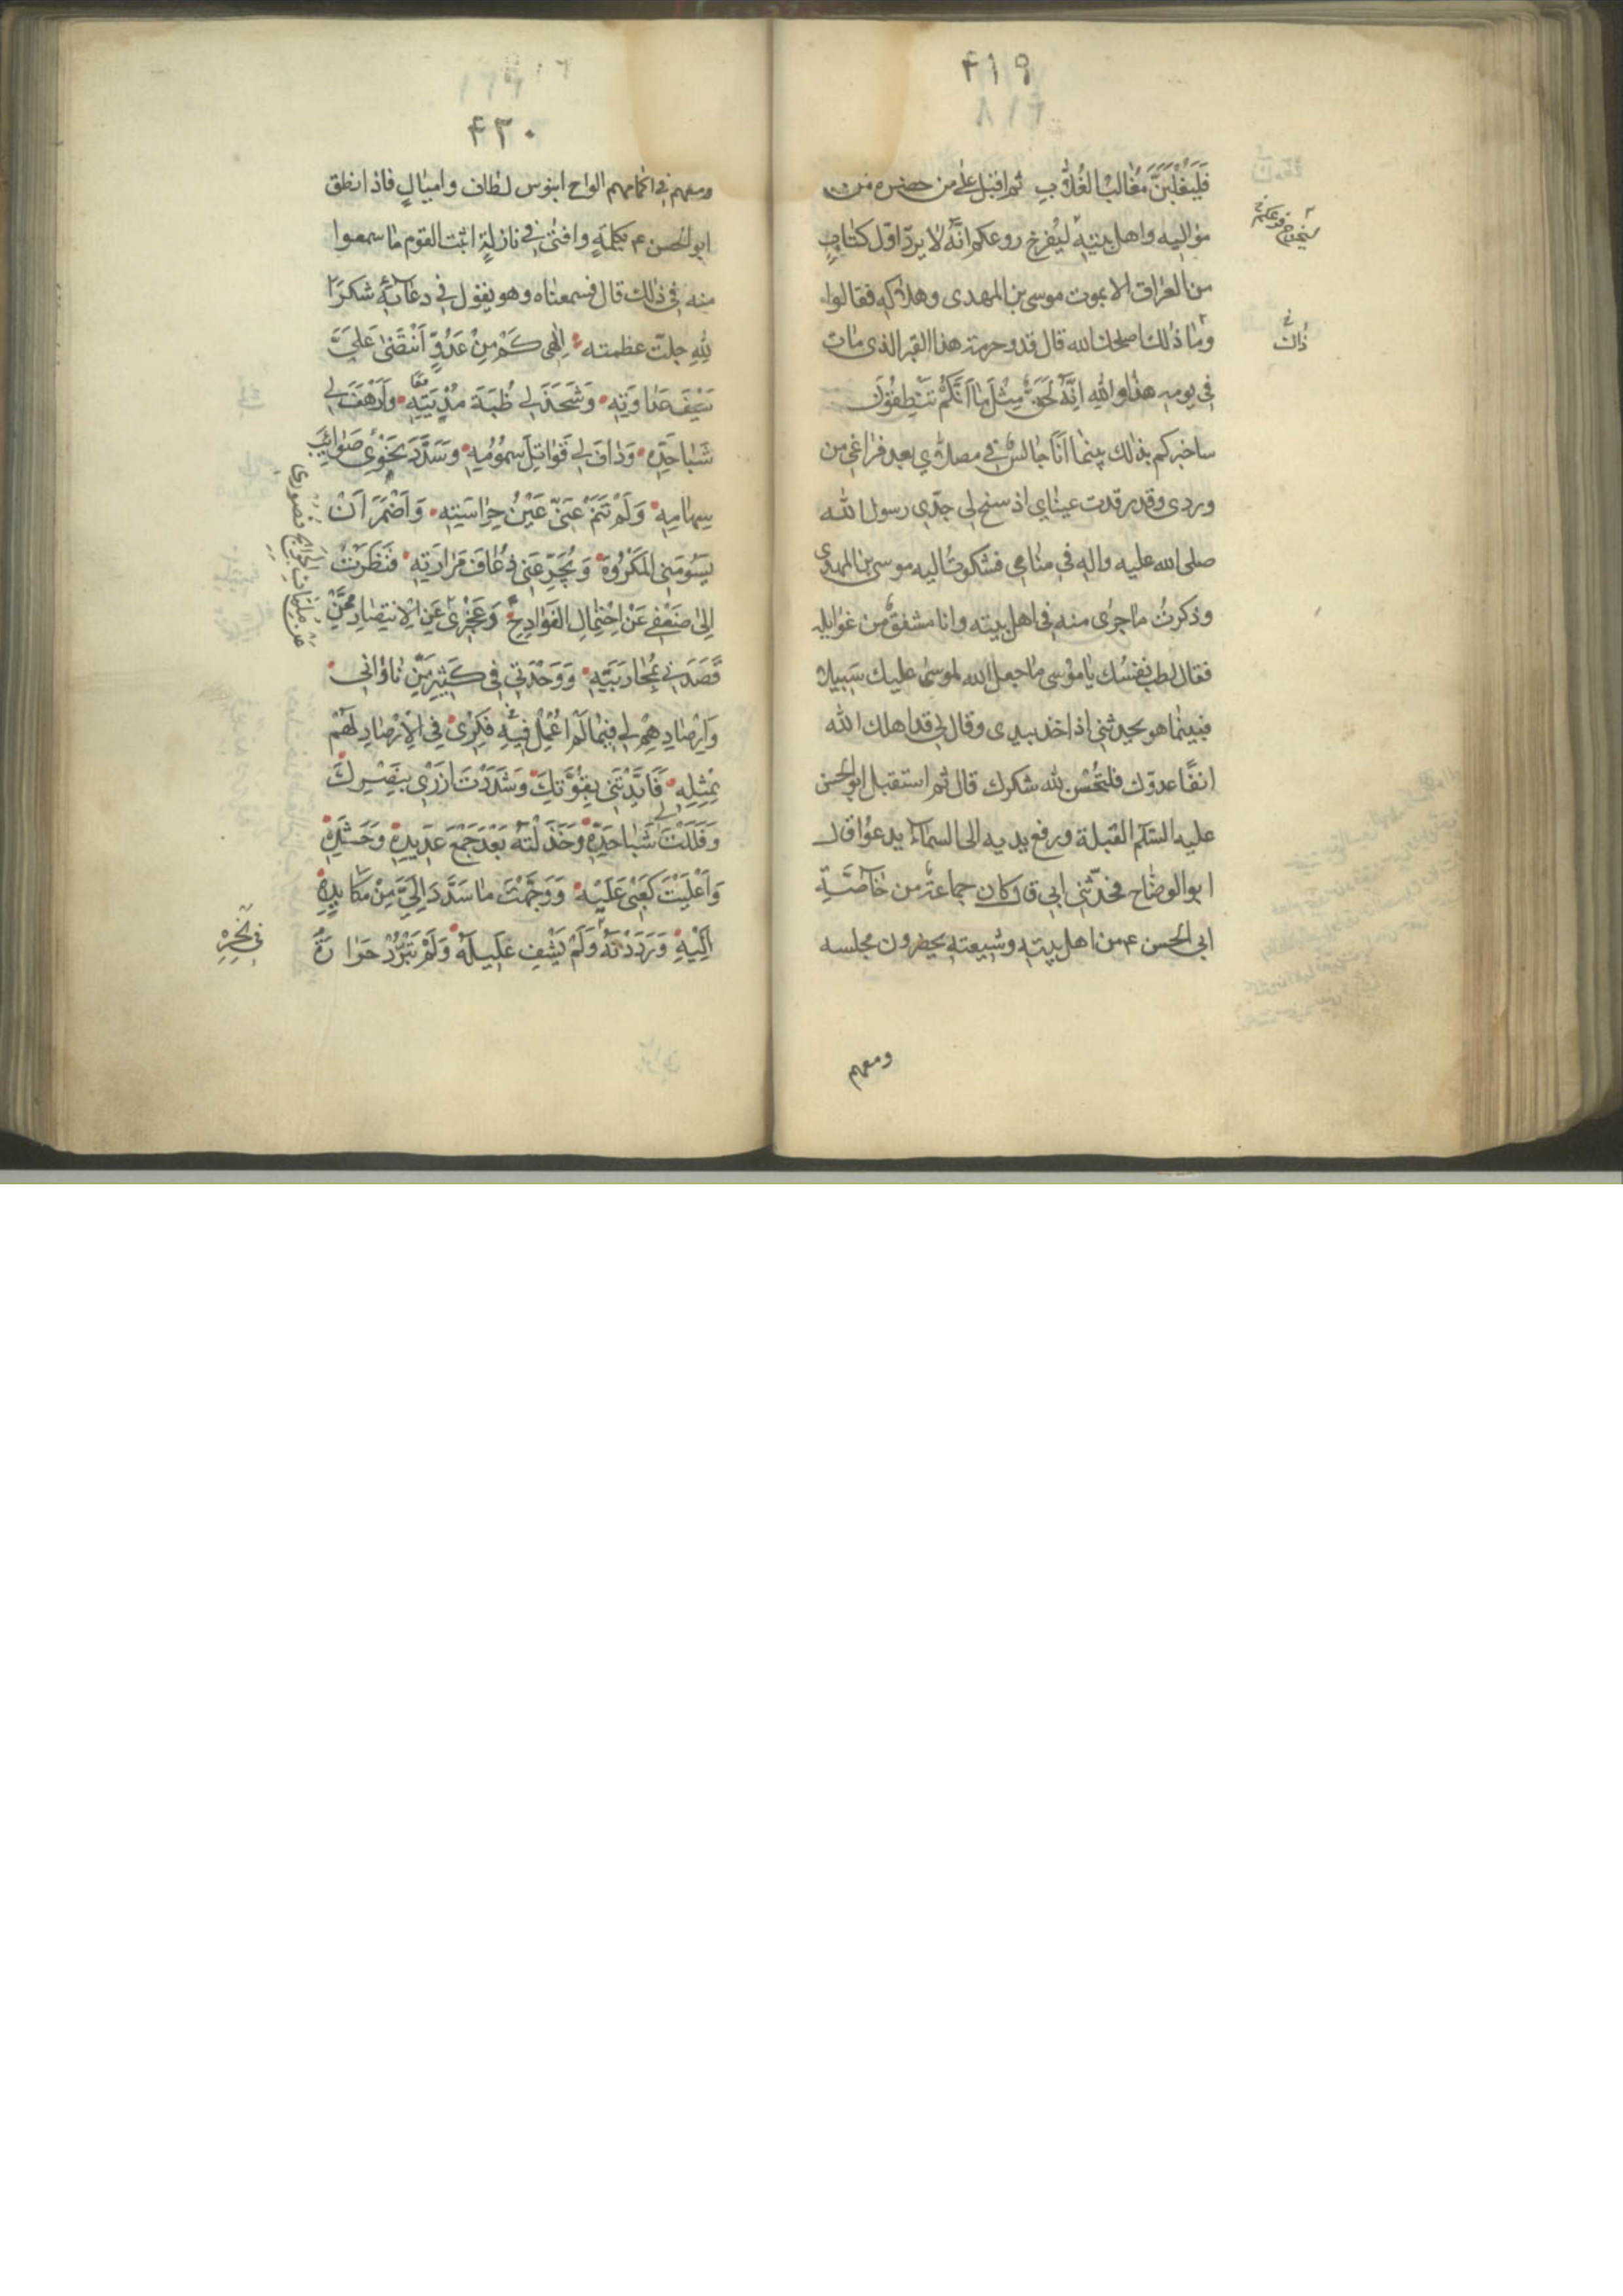 ۴۱۹
فَلَيَغْلِبَنَّ مُغَالِبُ الغُلَّابِ ثم اقبل على من حضره من
مواليه واهل بيته ليُفرخ روعكم انّه لا يرد اوّل كتابٍ
من العراق الا بموت موسى بن المهدى وهلاكه فقالوا
وما ذلك اصلحك الله قال قد وحرمة هذا القبر الذى مات
فى يومه هذا والله اِنَّهُ لَحَقٌّ مِثْلَ مَا اَنَّكُمْ تَنْطِقُونَ
ساخبركم بذلك بينما اَنَا جالسٌ فى مصلّاي بعد فراغى من
وردى وقد رقدت عيناي اذ سنح لى جدّي رسول الله
صلى الله عليه واله فى منامى فشكوتُ اليه موسى بن المهدى
وذكرتُ ما جرى منه فى اهل بيته وانا مشفق من غوايله
فقال لطب نفسُك يا موسى ما جعل الله لموسى عليك سَبيلا
فبينما هو يحدثنى اذ اخذ بيدى وقال لى قد اهلك الله
انفًا عدوّك فلتُحْسن لله شكرك قال ثم استقبل ابو الحسن
عليه السلم القبلة ورفع يديه الى السماء يدعوا قال
ابو الوضاح فحدّثنى ابى قال وكان جماعة من خاصَّةِ
ابى الحسن ع من اهل بيته وشيعته يحضرون مجلسه
ومعهم
فى ذلك
۴۲۰
ومعهم فى اكمامهم الواح ابنوس لطاف واميالٍ فاذا نطق
ابو الحسن ع بكلمةٍ وافتى فى نازلةٍ اثبت القوم ما سمعوا
منه فى ذلك قال فسمعناه وهو يقول فى دعائه شكرًا
لِلّهِ جلّت عظمته اِلٰهى كَمْ مِنْ عَدُوٍّ اَنْتَضٰى عَلَيَّ
سَيْفَ عَدَاوَتِهِ وَشَحَذَ لى ظُبَةَ مُدْيَتِهِ وَاَرْهَفَ لى
شَبَا حَدِّهِ وَدَافَ لى قَوَاتِلَ سُمُومِهِ وَسَدَّدَ نَحْوى صَوَائِبَ
سِهَامِهِ وَلَمْ تَنَمْ عَنّى عَيْنُ حِرَاسَتِهِ وَاَضْمَرَ اَنْ
يَسُومَنِى المَكْرُوهَ وَيُجَرِّعَنى ذُعَافَ مَرَارَتِهِ فَنَظَرْتَ
اِلى ضَعْفى عَنْ اِحْتِمَالِ الفَوَادِحِ وَعَجْزى عَنِ الْاِنتِصَارِ مِمَّنْ
قَصَدَنى بِمُحَارَبَتِهِ وَوَحْدَتى فى كَثِيرِ مَنْ نَاوَانى
وَاِرْصَادِهِمْ لى فيمَا لَمْ اُعْمِلْ فيهِ فِكْرى فِى الْاِرْصَادِ لَهُمْ
بِمِثْلِهِ فَاَيَّدْتَنى بِقُوَّتِكَ وَشَدَدْتَ ازرى بِنَصْرِكَ
وَفَلَلْتَ شَبَا حَدِّهِ وَخَذَلْتَهُ بَعْدَ جَمْعِ عَدِيدِهِ وَحَشْدِهِ
وَاَعْلَيْتَ كَعْبى عَلَيْهِ وَوَجَّهْتَ مَا سَدَّدَ اِلَيَّ مِنْ مَكَايِدِهِ
اِلَيْهِ وَرَدَدْتَهُ وَلَمْ يَشْفِ غَليلَهُ وَلَمْ تَبْرُدْ حَرَارَةُ
عَنْ مُلِمَّاتِ الجَوَايِحِ
فى نَحْرِهِ